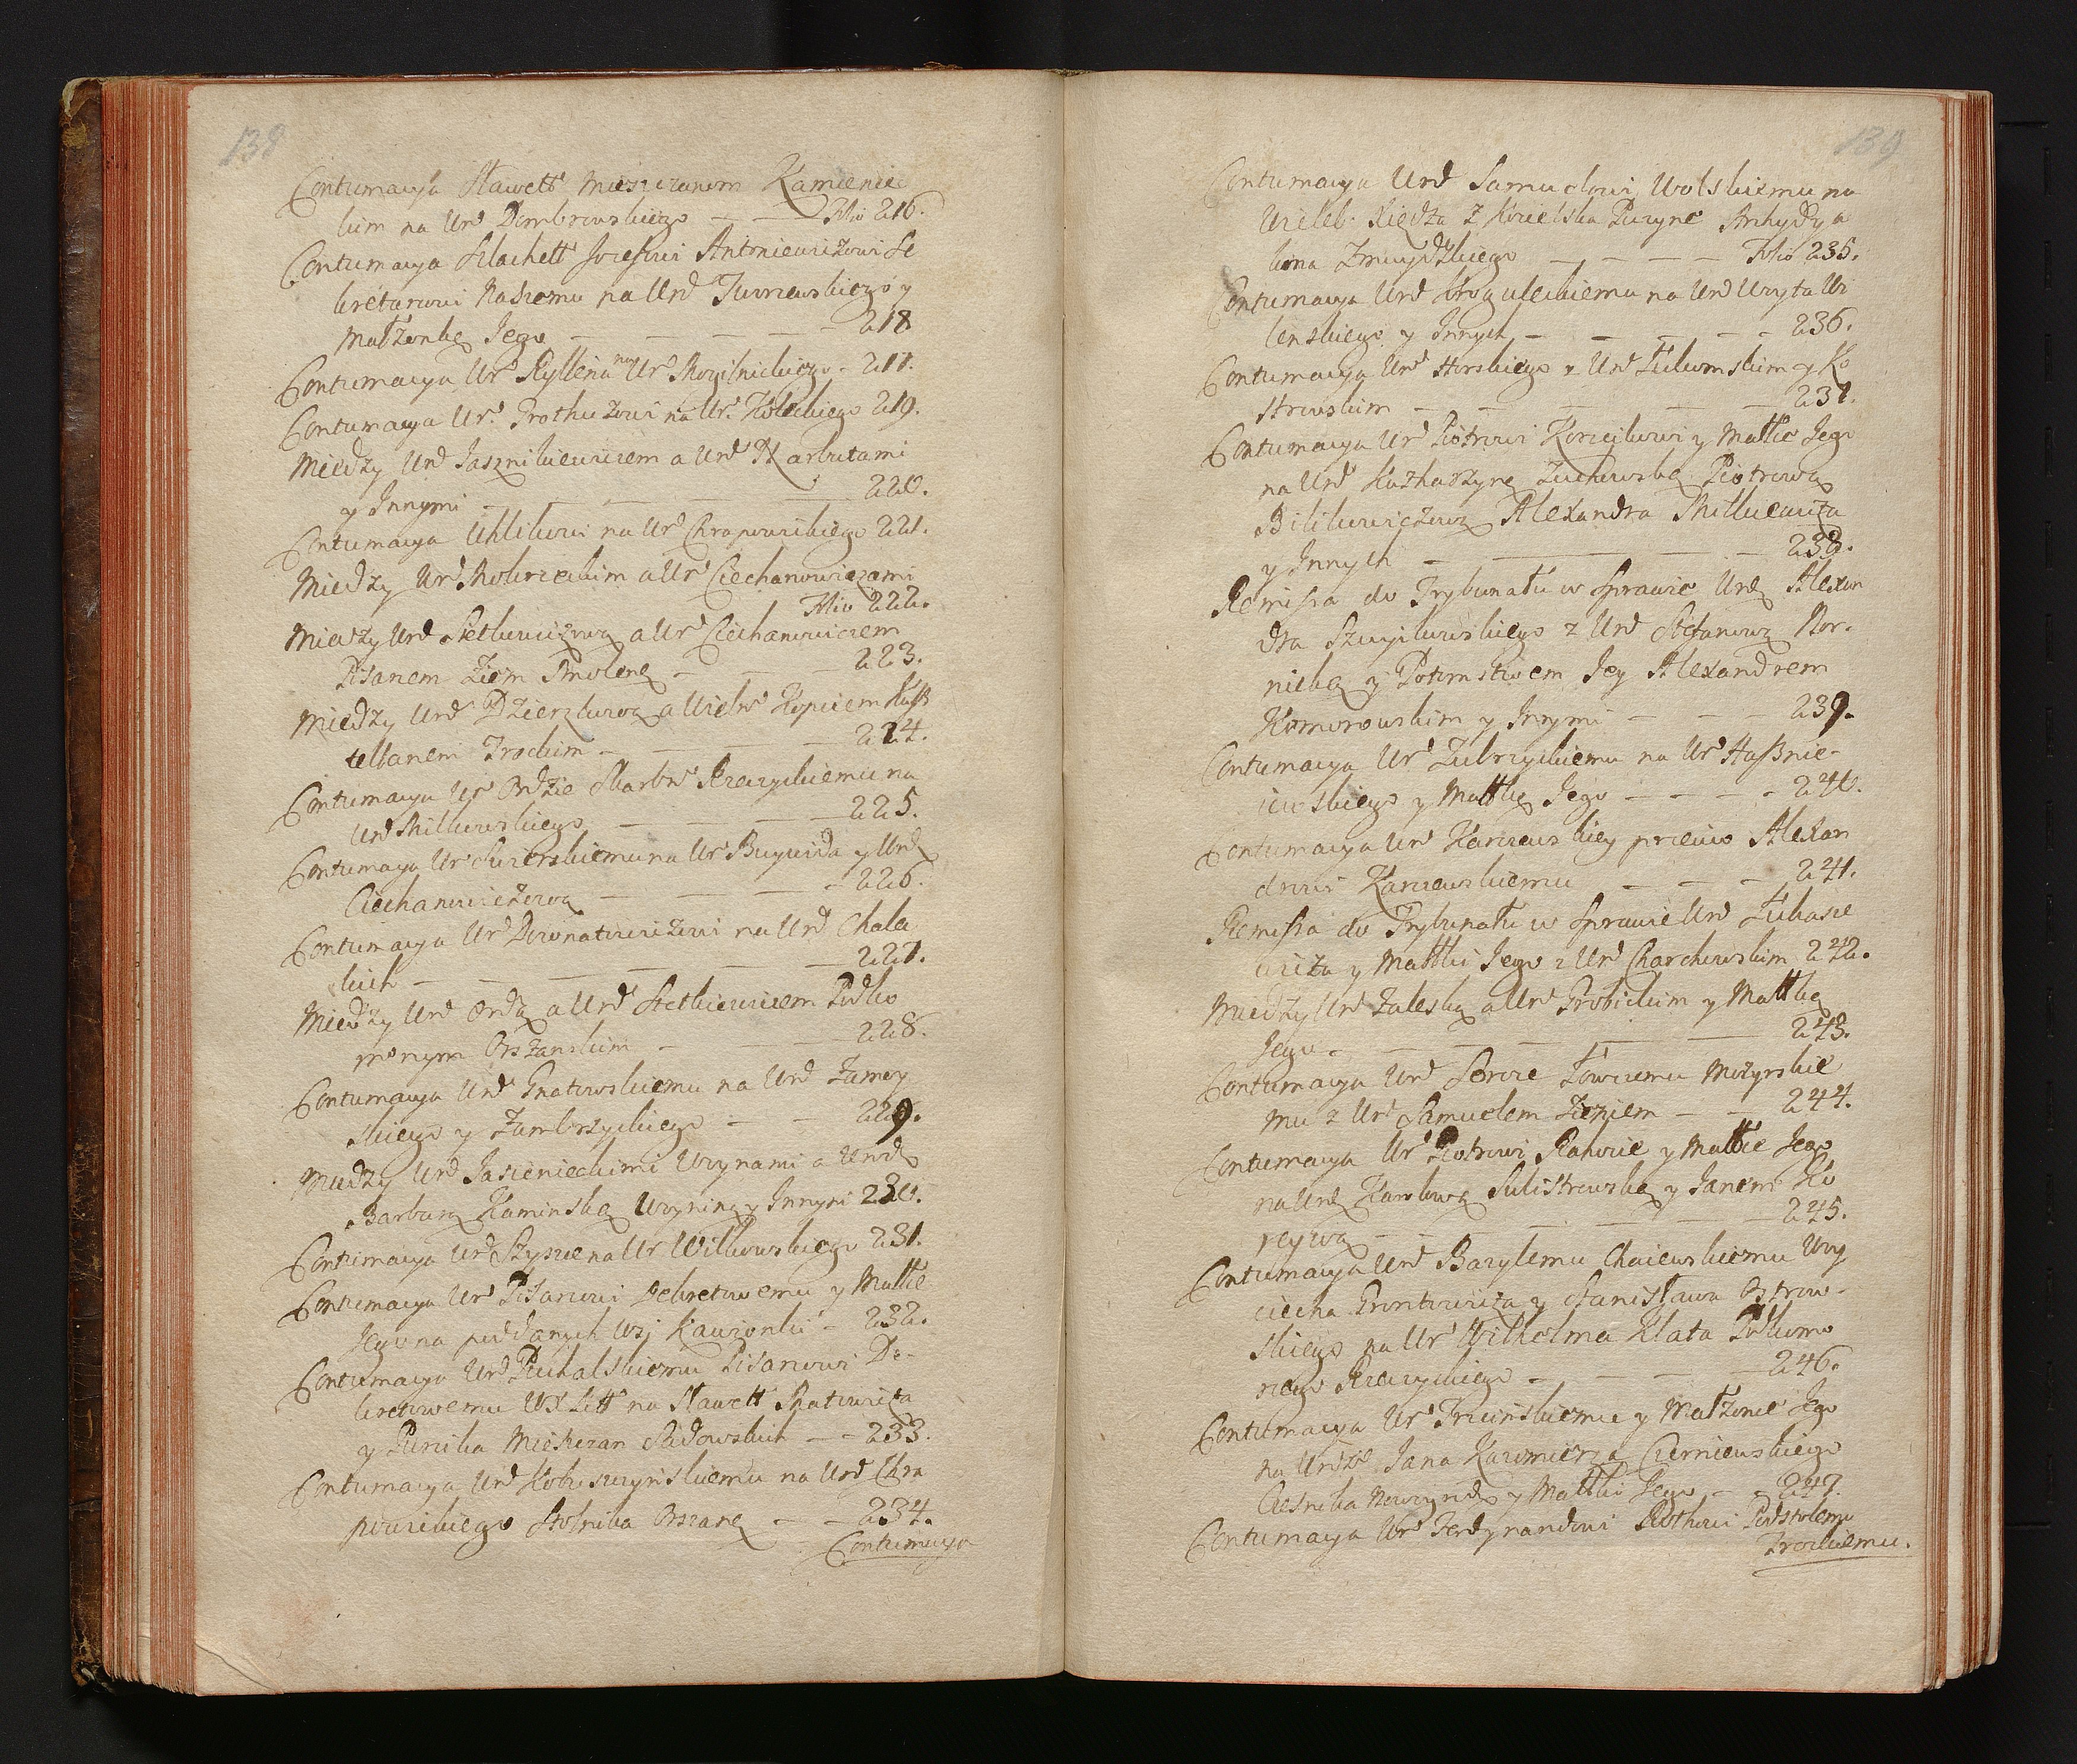 138
Contumacya Sławett Mieszczanom Kamieniec
kim na Urd Dombrowskiego — — Folio 216.
Contumacya Szlachett Jozefowi Antoniewiczowi Se
kretarzowi Naszemu na Urd Turczewskiego y
Małżonkę Jego — — — — 218
Contumacya Ur Ryllena na Ur Mogilnickiego - 217.
Contumacya Ur. Prothuzowi na Ur. Kołeckiego 219.
Miedzy Urd Jasznikiewiczem a Urd Narbutami
y Jnnymi — — — — 220.
Contumacya Uhlikowi na Ur Chrapowickiego 221.
Miedzy Ur Mokrzeckim a Ur Ciechanowiczami
Folio 222.
Miedzy Urd Sietkiewiczową a Ur Ciechanowiczem
Pisarzem Ziem Smolenę — — 223.
Miedzy Urd Dzierzkową a Wielm Kopciem Kasz
tellanem Trockim — — — 224.
Contumacya Ur Ordzie Skarbni Rzeczyckiemu na
Urd Mitkowskiego — — — 225.
Contumacya Ur Suzerskiemu na Ur Buywida y Urdę
Ciechanowiczową — — — 226.
Contumacya Ur Downatowiczowi na Urd Chalec
kich — — — — 227.
Miedzy Urd Ordą a Urd Stetkiewiczem Podko
morzym Orszanskim — — — 228.
Contumacya Urd Gnatowskiemu na Urd Zamoy
skiego y Zambrzyckiego — — 229.
Miedzy Urd Jasienieckimi Woynami a Urodę
Barbarą Kaminską Woyniną y Jnnymi 230.
Contumacya Urd Szyszce na Ur Witkowskiego 231.
Contumacya Ur Pisarzowi Dekretowemu y Małłce
Jego na poddanych Wsj Kawzonki — 232.
Contumacya Urd Puchalskiemu Pisarzowi De-
kretowemu WX Litt na Sławett Matowicza
y Puncika Mieszczan Sadowskich — — 233.
Contumacya Urd Kobuszczynskiemu na Urd Chra
powickiego Stolnika Orszanę — — 234.
Contumacya
139
Contumacya Urd Samuelowi Wolskiemu na
Wieleb. Xiędza Z Kozielska Puzyne Archydya
kona Zmuydzkiego — — — — Folio 235.
Contumacya Urd Kroguleckiemu na Urd Woyta Wi
lenskiego y Jnnych — — — — 236.
Contumacya Urd Horskiego z Urd Łukomskim y Ko
strowskim — — — — 237.
Contumacya Ur Piotrowi Korzeykowi y Małłce Jego
na Urd Katharzynę Zuchowską Piotrową
Bilikowiczową Alexandra Mitkiewicza
y Jnnych — — — — 238.
Remissa do Trybunału w Sprawie Urdę Alexan
dra Szwykowskiego z Urd Stefanową Nor-
nicką y Potomstwem Jey Alexandrem
Komorowskim y Jnnymi — — — 239.
Contumacya Ur Zubrzyckiemu na Ur Hassnie-
wskiego y Małłkę Jego — — — — 240.
Contumacya Urd Karczewskiey przeciw Alexan
drowi Karczewskiemu — — — 241.
Remissa do Trybunału w Sprawie Urd Łukasze
wicza y Małłki Jego z Urd Charchowskim 242.
Miedzy Urd Zaleską a Urd Grobickim y Małłką
Jego — — — — 243.
Contumacya Urd Soroce Łowczemu Mozyrskie
mu z Ur Samuelem Zieniem — — 244.
Contumacya Ur Piotrowi Rahoze y Małłce Jego
na Urdę Karolową Sulistrowską y Janem Ko
reywą — — — — 245.
Contumacya Urd Bazylemu Chaiewskiemu Woy
ciecha Grontowicza y Stanisława Ostrow-
skiego na Ur Wilhelma Klata Podkomo
rzego Rzeczyckiego — — — 246.
Contumacya Ur Trzcińskiemu y Małżonce Jego
na Urdze Jana Kazimierza Czerniewskiego
Czesnika Nowogrodę y Małłki Jego — — 247.
Contumacya Ur Ferdynandowi Rothowi Podstolemu
Trockiemu.